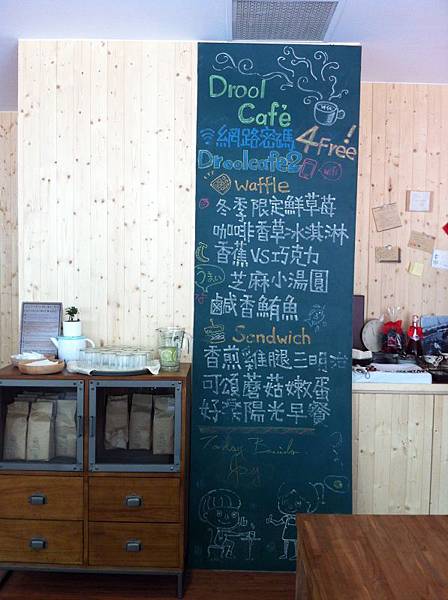 Drool
Café
網路密碼
4 Free!
Droolcafe2
wifi
waffle
冬季限定鮮草莓
咖啡香草冰淇淋
香蕉VS巧克力
うまい
芝麻小湯圓
鹹香鮪魚
Sandwich
香煎雞腿三明治
可頌蘑菇嫩蛋
好漾陽光早餐
Today
By